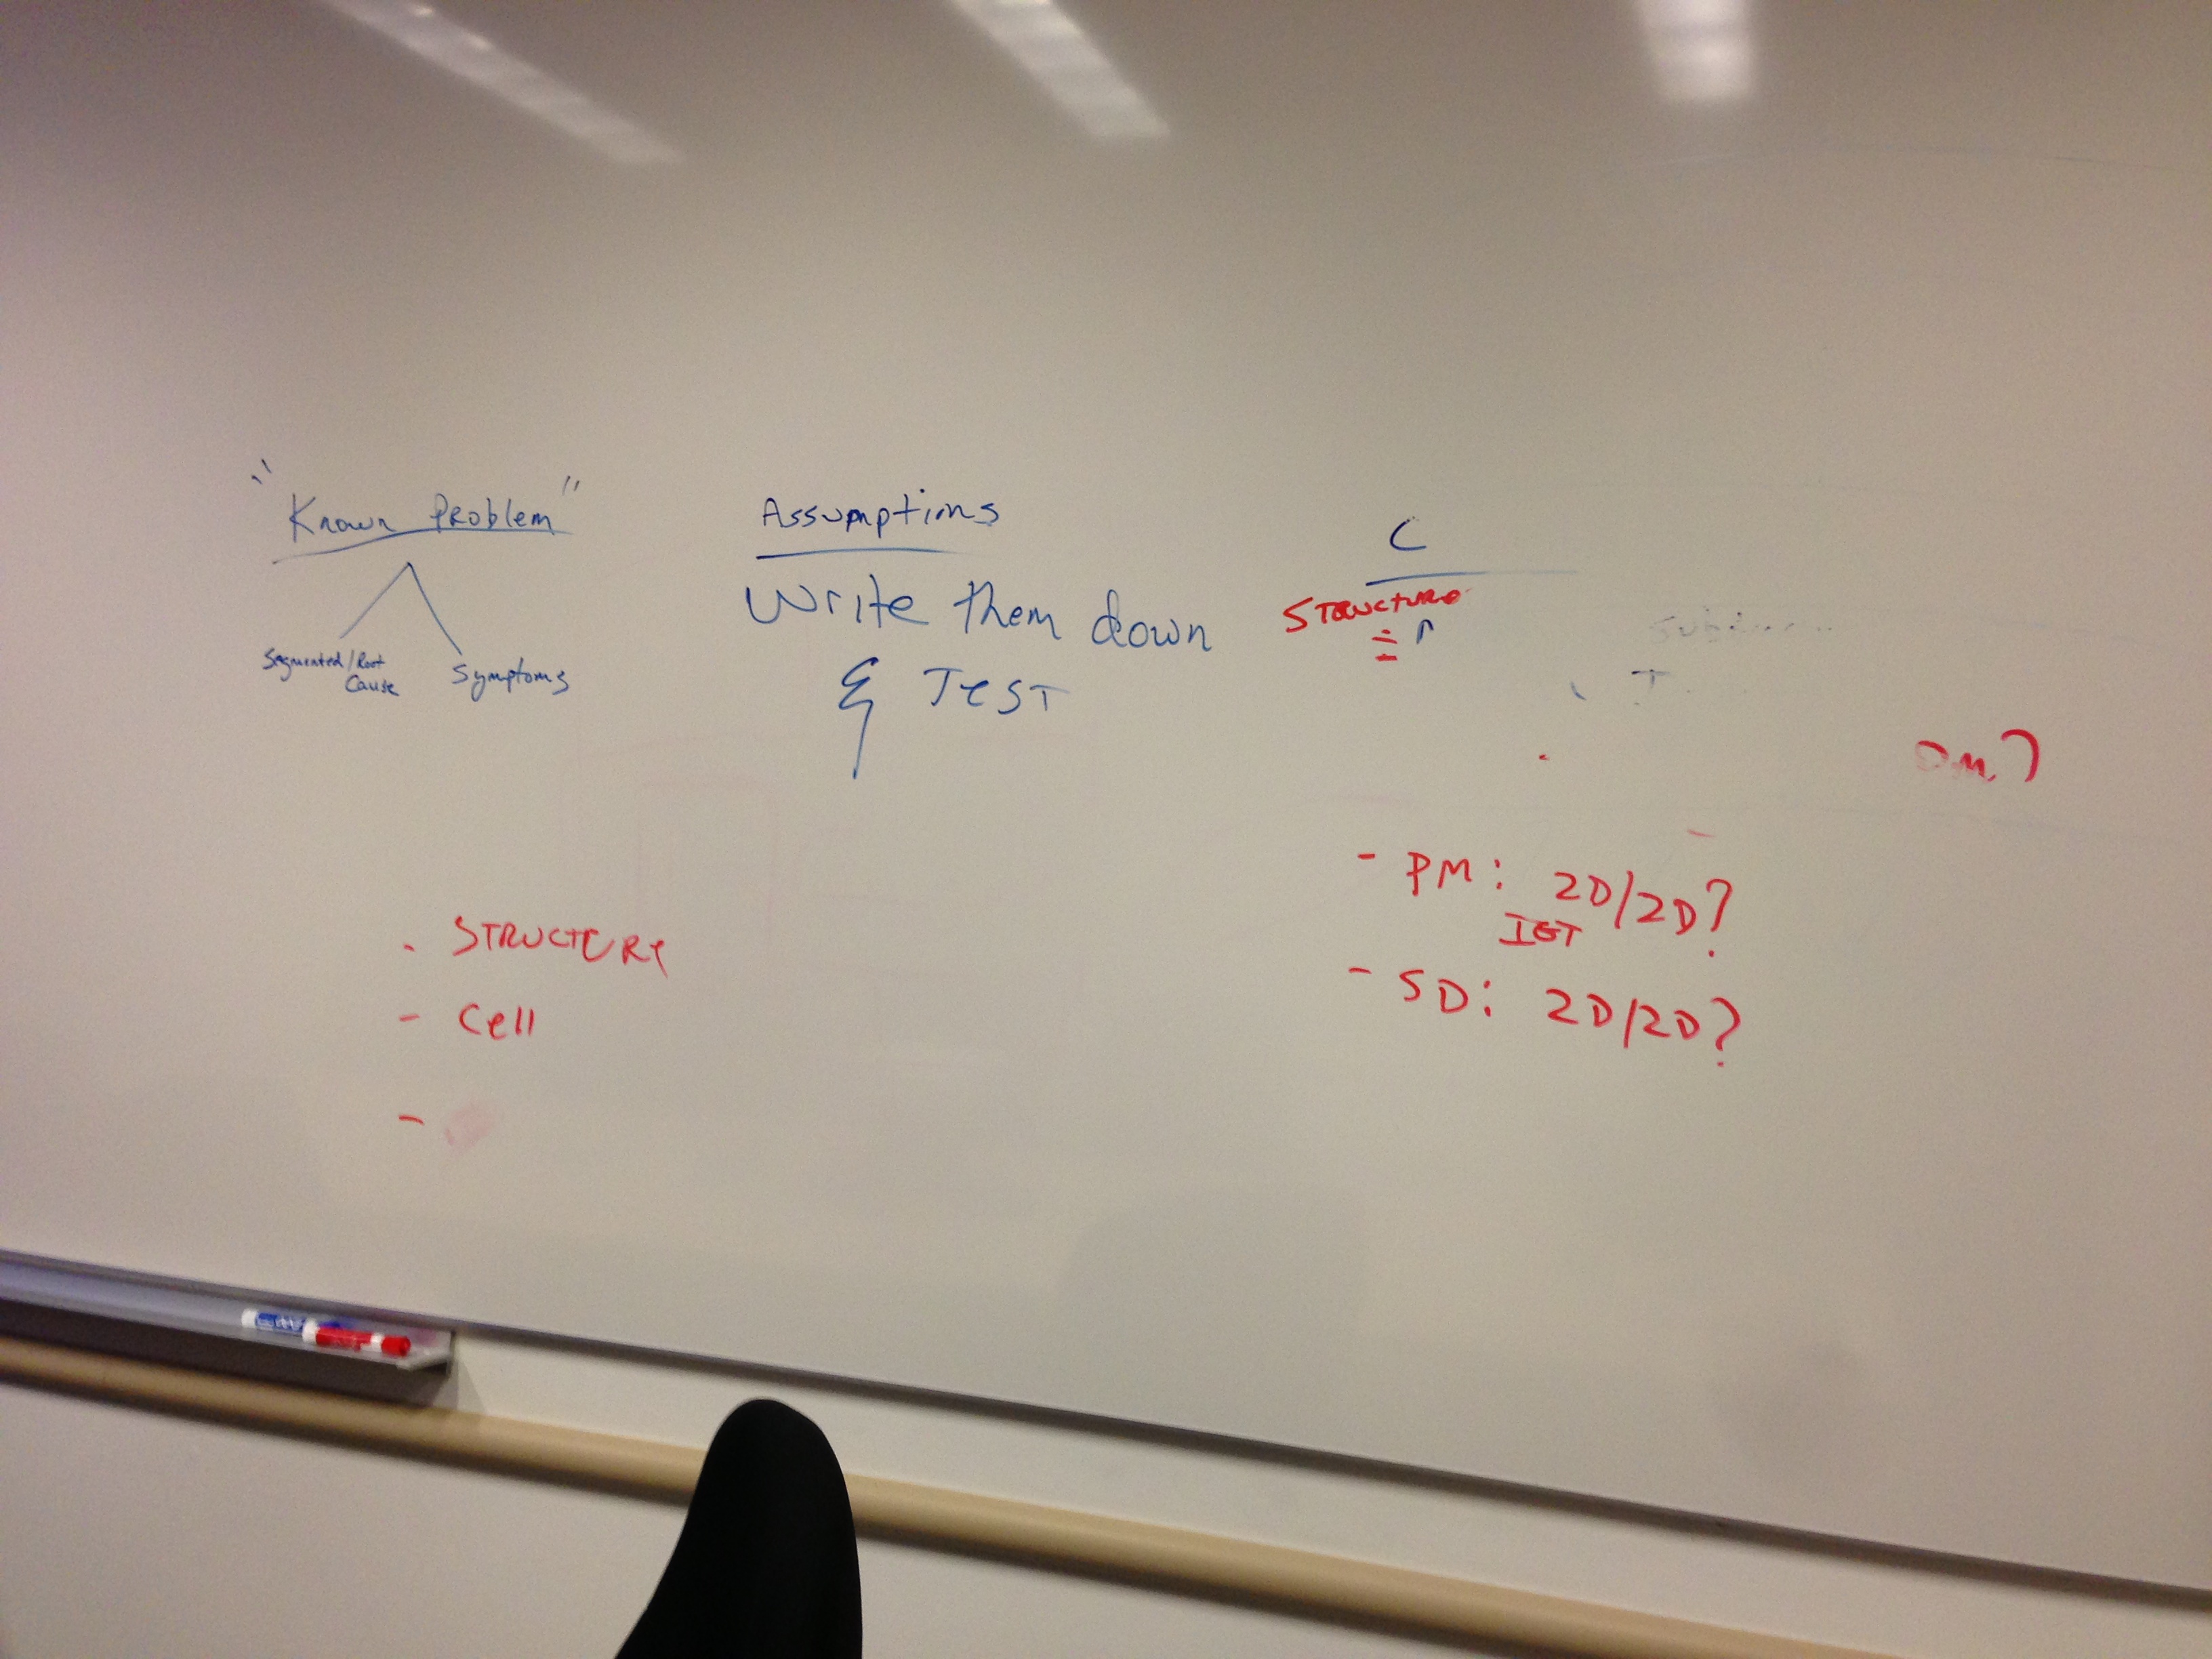 "Known Problem"
Segmented/Root
Cause
Symptoms
Assumptions
Write them down
& TEST
C
STRUCTURE
- PM: 2D/2D?
- SD: 2D/2D?
- Cell